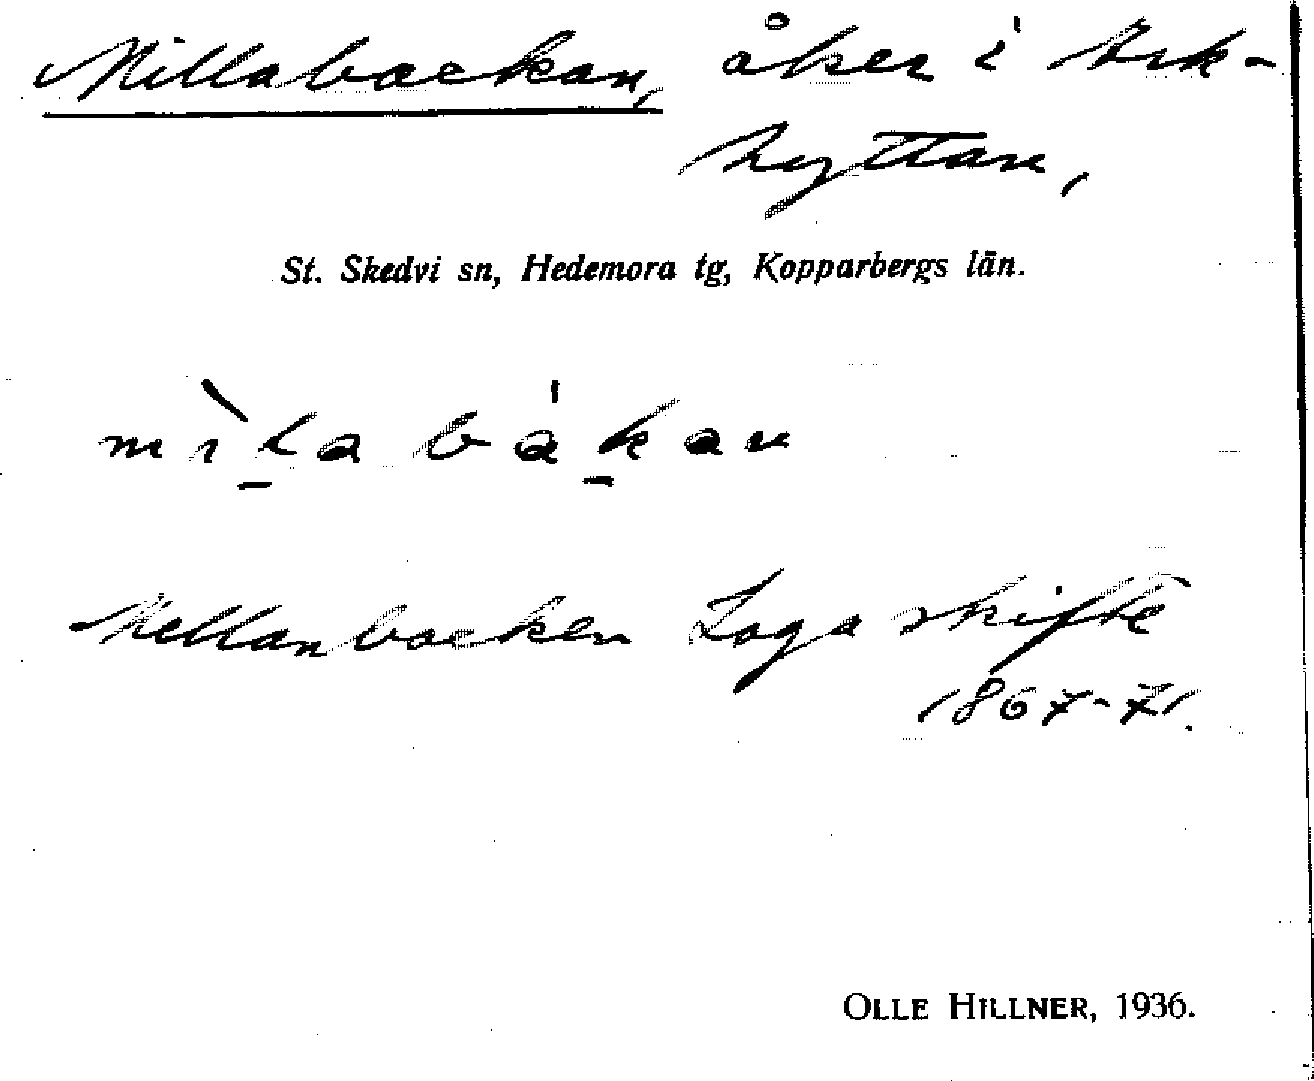 Millabackan, åker i Ark-
hyttan,
St. Skedvi sn, Hedemora tg, Kopparbergs län.
mìlabákan
Mellanbacken Laga skifte
1867-71.
OLLE HILLNER, 1936.